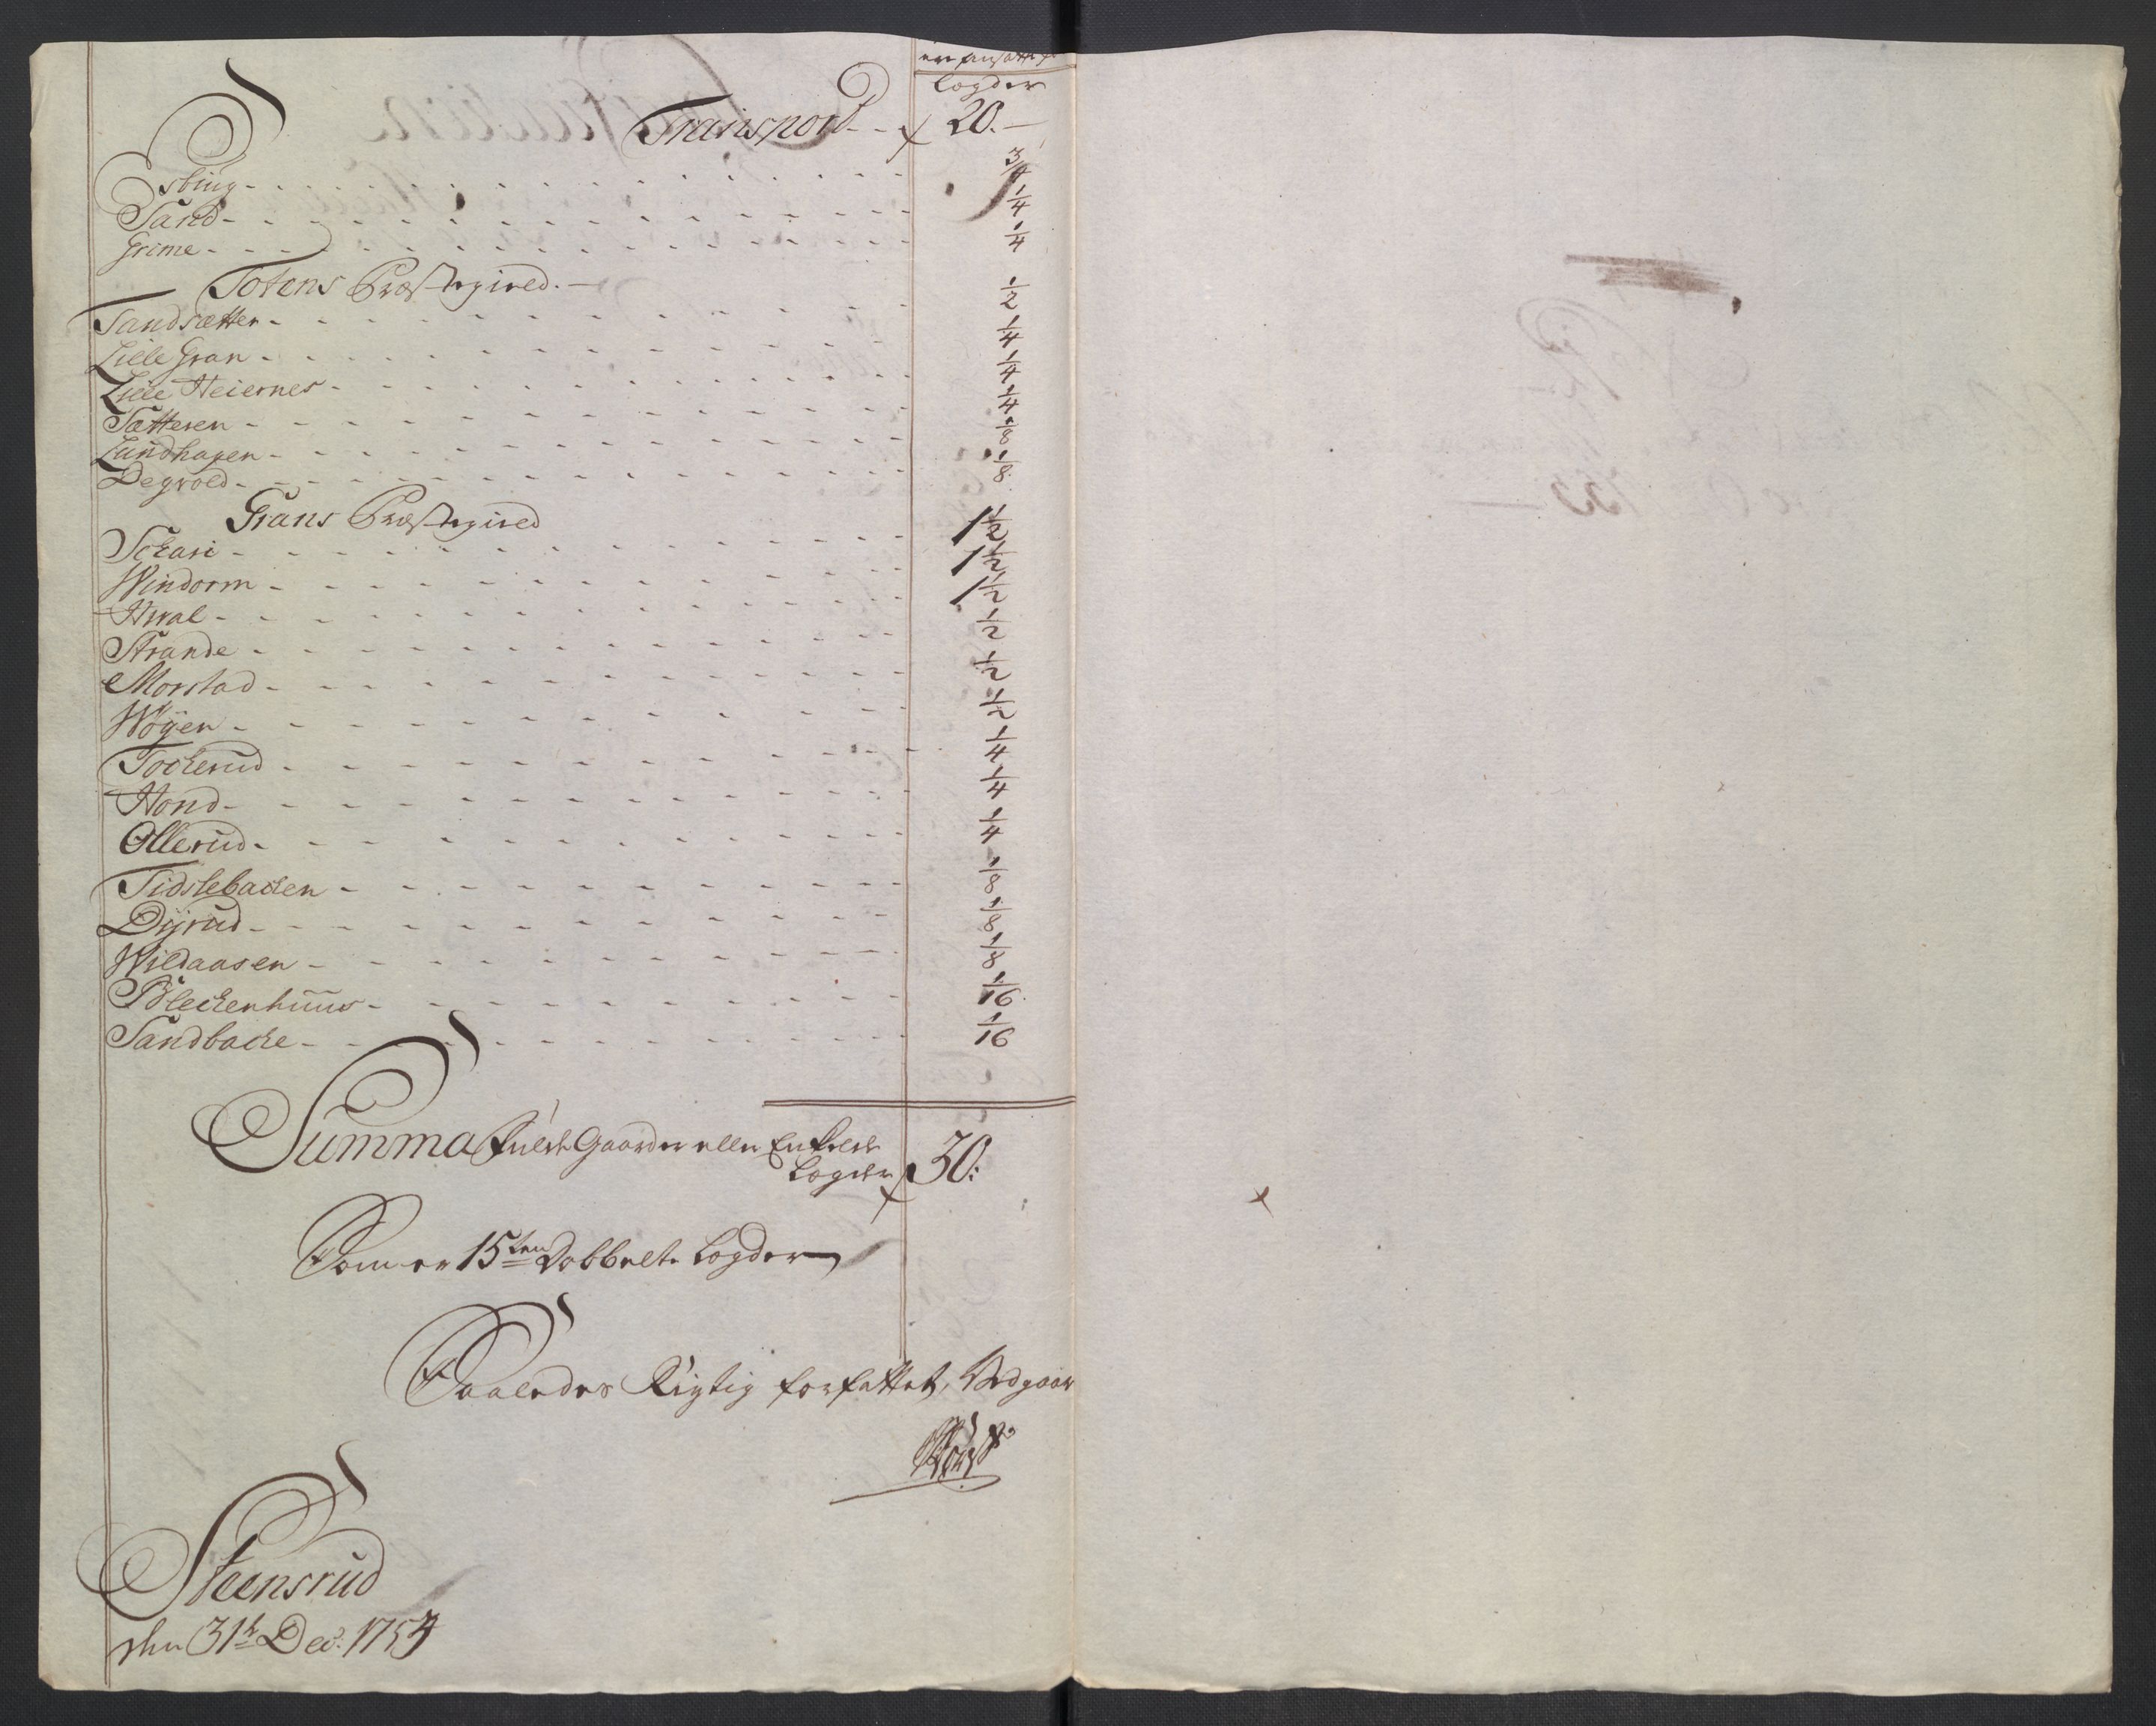 er ansatte f
Lægder
Transport - - 20. -
Esbiug - 3/4
Sand - 1/4
Grime - 1/4
Totens Præstegield. -
Sandsætter - 1/2
Lille Gran - 1/4
Lille Heiernes - 1/4
Sætteren - 1/4
Lundhagen - 1/8
Degvold - 1/8
Grans Præstegield
Schari - 1 1/2
Windorm - 1 1/2
Hval - 1 1/2
Strande - 1/2
Morstad - 1/2
Wøyen - 1/2
Tockerud - 1/4
Hond - 1/4
Ollerud - 1/4
Tidslebacken - 1/8
Dyrud - 1/8
Wildaasen - 1/8
Bleckenhuus - 1/16
Sandbacke - 1/16
Summa Fulde Gaarder eller Enkelte
Lægder 30:
Som er 15ten Dobbelte Lægder
Saaledes Rigtig forfattet, Vedgaar
Steensrud
den 31te Dec: 1753